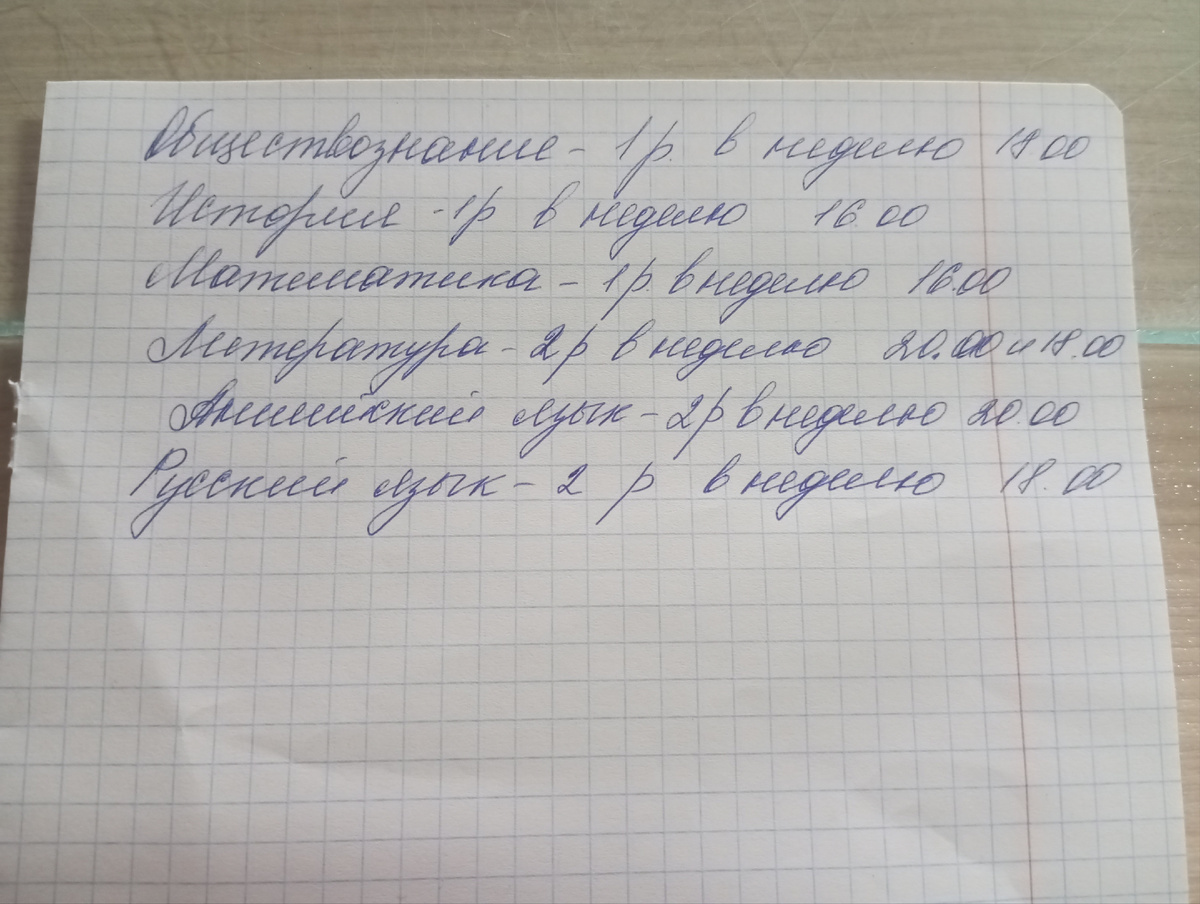 Обществознание - 1 р. в неделю 18 00
История - 1р в неделю 16.00
Математика - 1 р. в неделю 16.00
Литература - 2 р в неделю 20.00 и 18.00
Английский язык - 2 р в неделю 20.00
Русский язык - 2 р в неделю 18.00